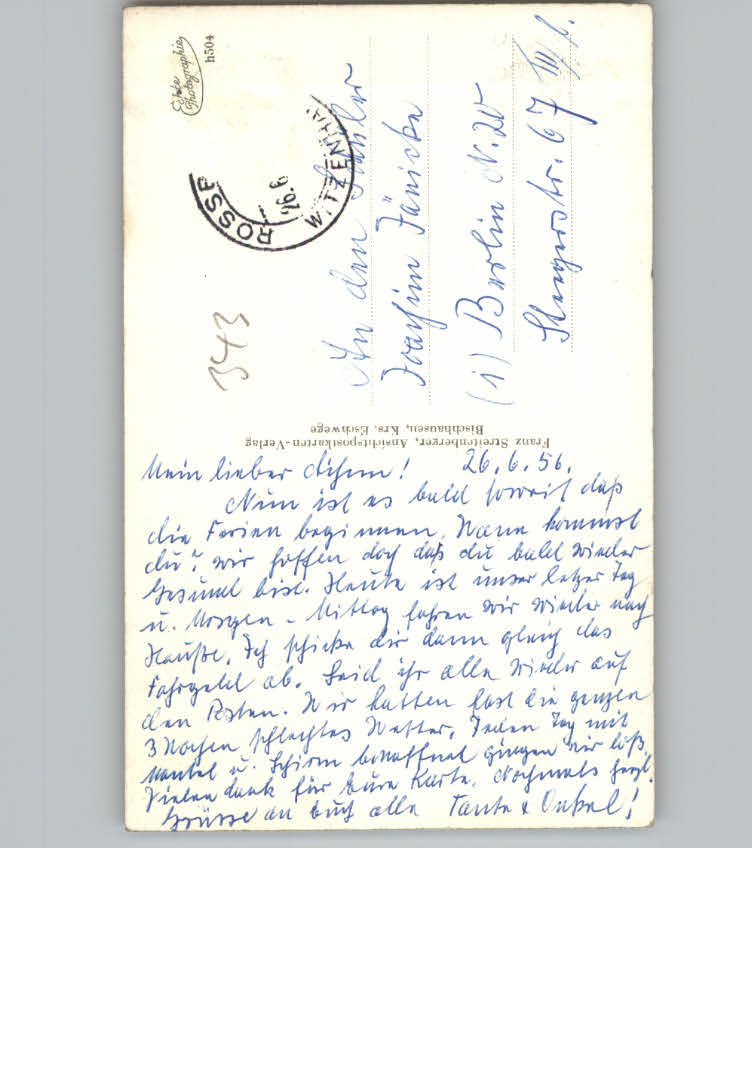 Echte
Photographie
h504
ROSSB
26.6
WITZENHA
343
An den Schüler
Joachim Jänicke
(1) Berlin N. 20
67 III/l.
Franz Streitenberger, Ansichtspostkarten-Verlag
Bischhausen, Krs. Eschwege
Mein lieber Achim! 26.6.56.
Nun ist es bald soweit daß
die Ferien beginnen. Wann kommst
du? wir hoffen doch daß du bald wieder
Gesund bist. Heute ist unser letzer Tag
u. Morgen - Mittag fahren wir wieder nach
Hauße. Ich schicke dir dann gleich das
Fahrgeld ab. Seid ihr alle wieder auf
den Posten. Wir hatten fast die ganzen
3 Wochen schlechtes Wetter. Jeden Tag mit
Mantel u. Schirm bewaffnet gingen wir loß.
Vielen dank für Eure Karte. Nochmals herzl.
Grüsse an Euch alle Tante & Onkel!